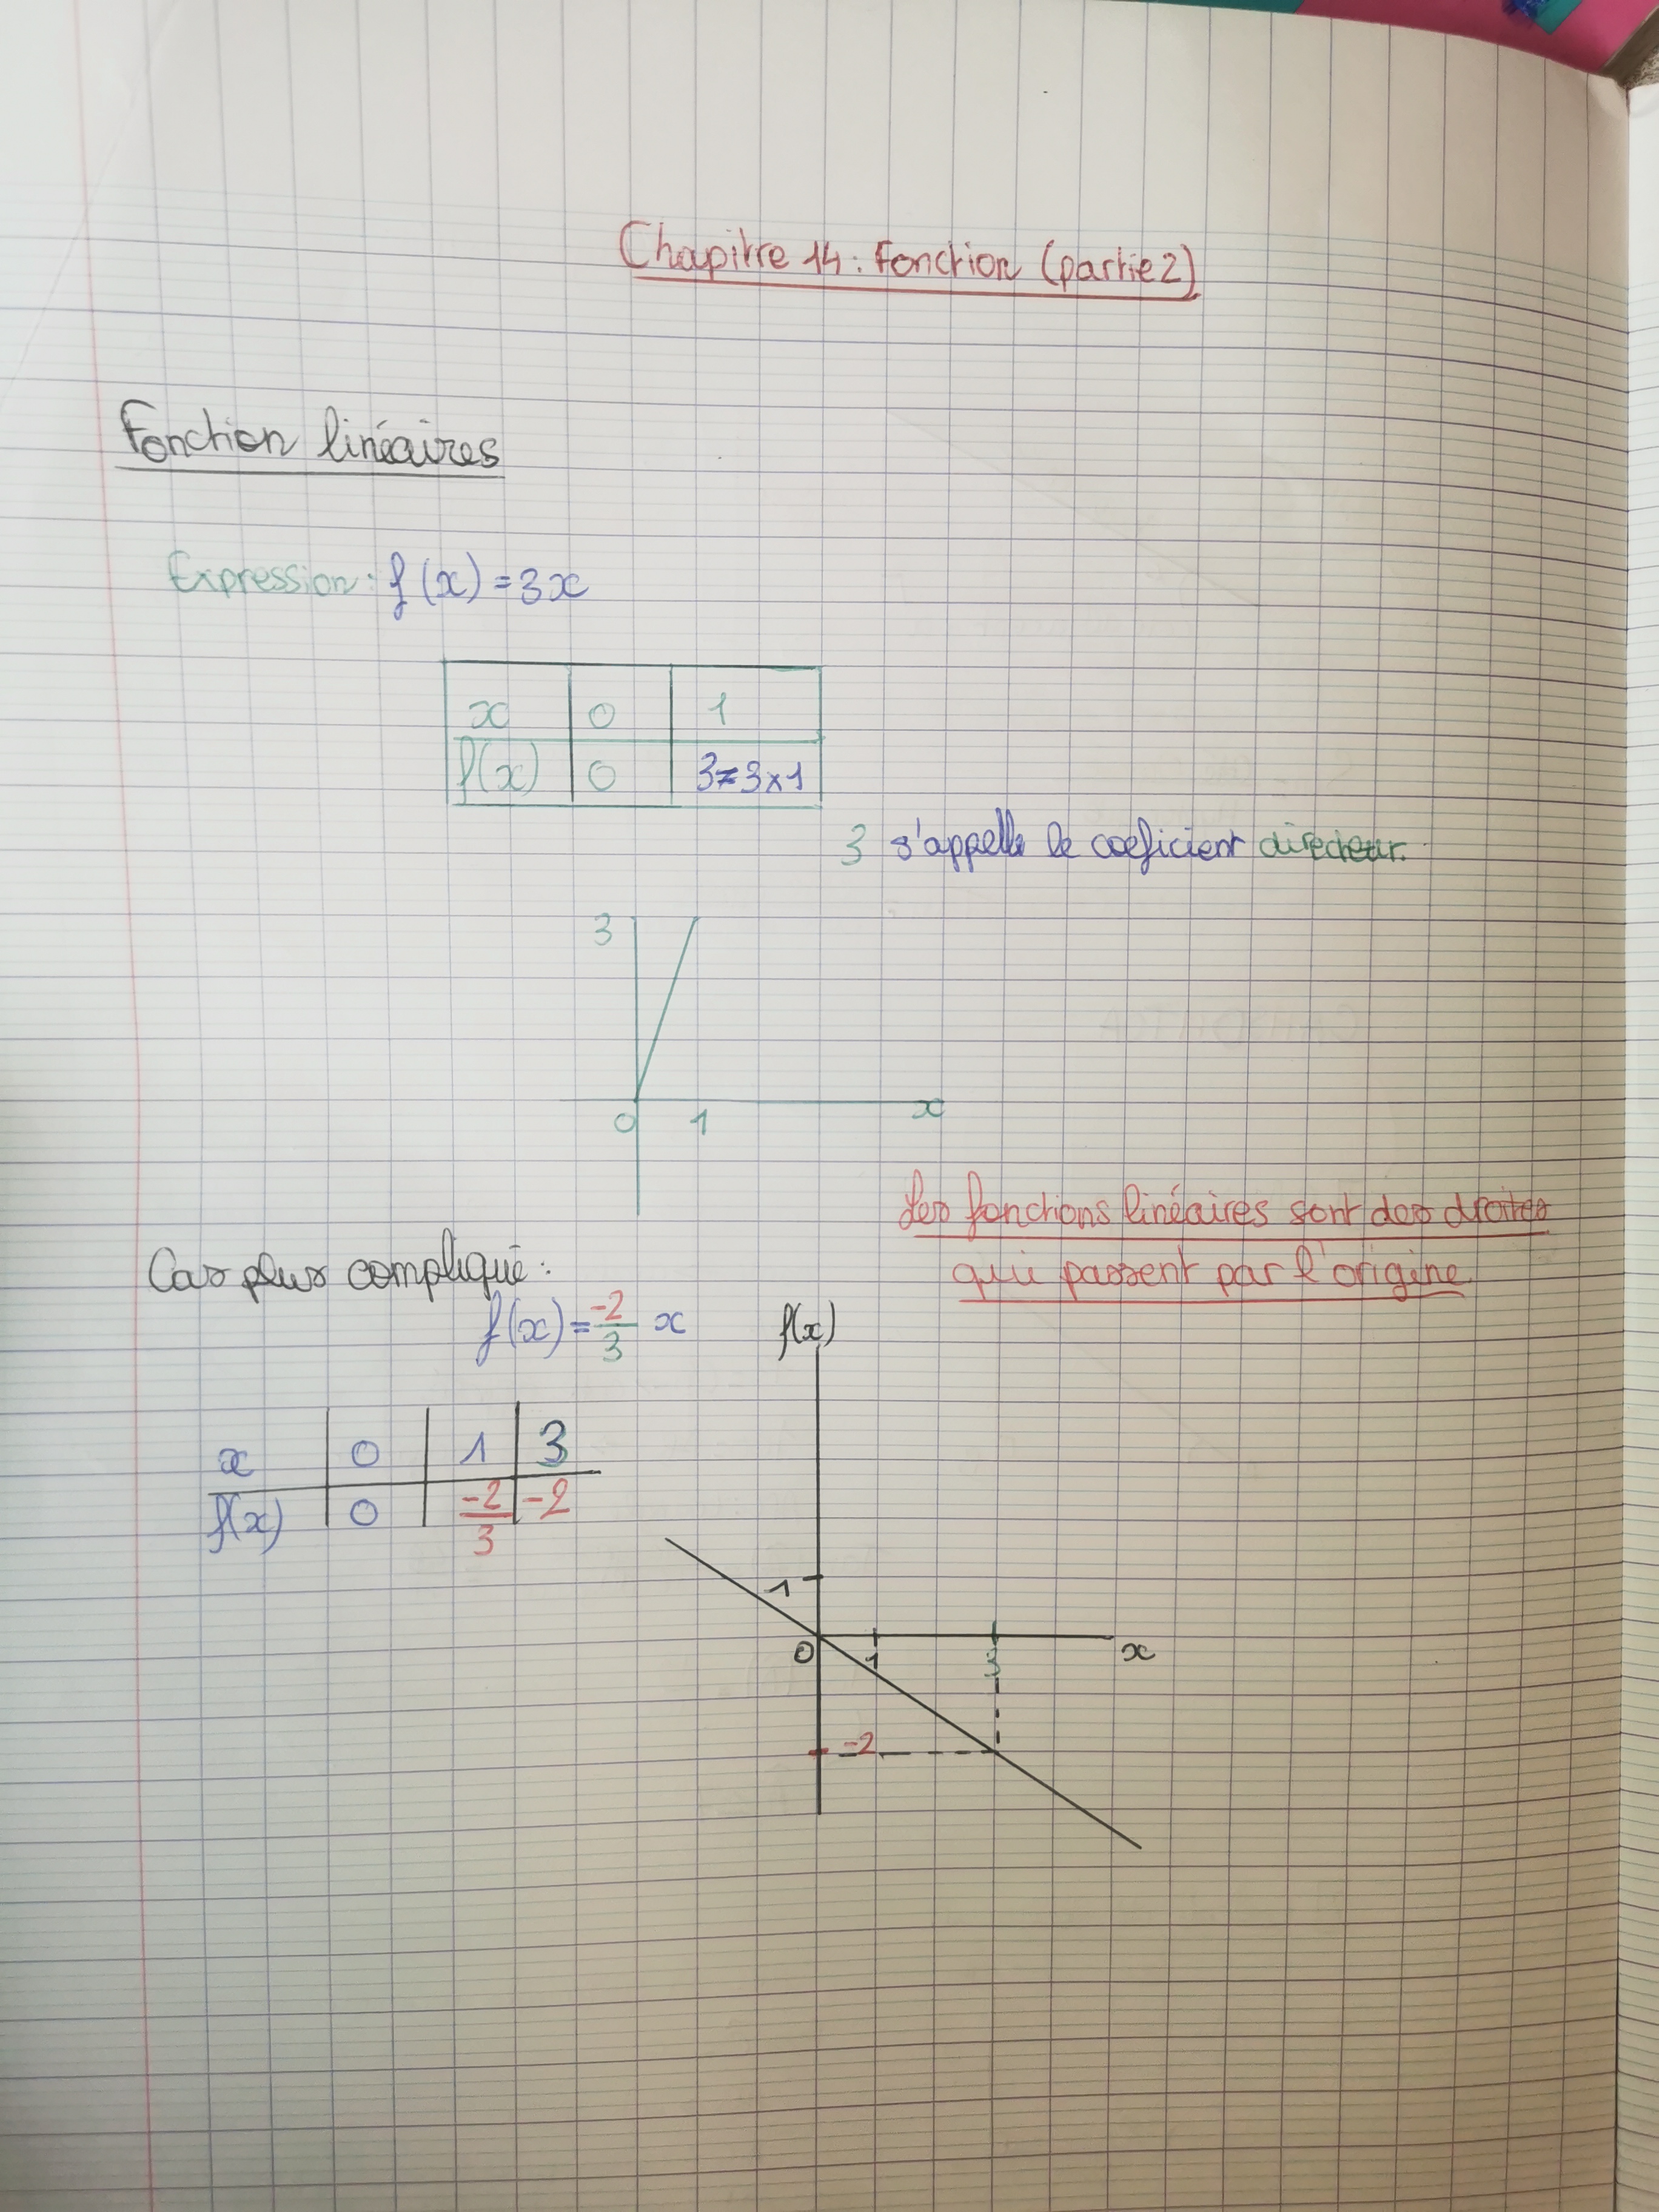 Chapitre 14 : Fonction (partie 2)
Fonction linéaires
Expression : f(x) = 3x
x 0 1
f(x) 0 3=3×1
3 s'appelle le coeficient directeur.
3
0 1 x
Les fonctions linéaires sont des droites
qui passent par l'origine
Cas plus compliqué :
f(x) = -2/3 x
f(x)
x 0 1 3
f(x) 0 -2/3 -2
1
0 1 3 x
-2